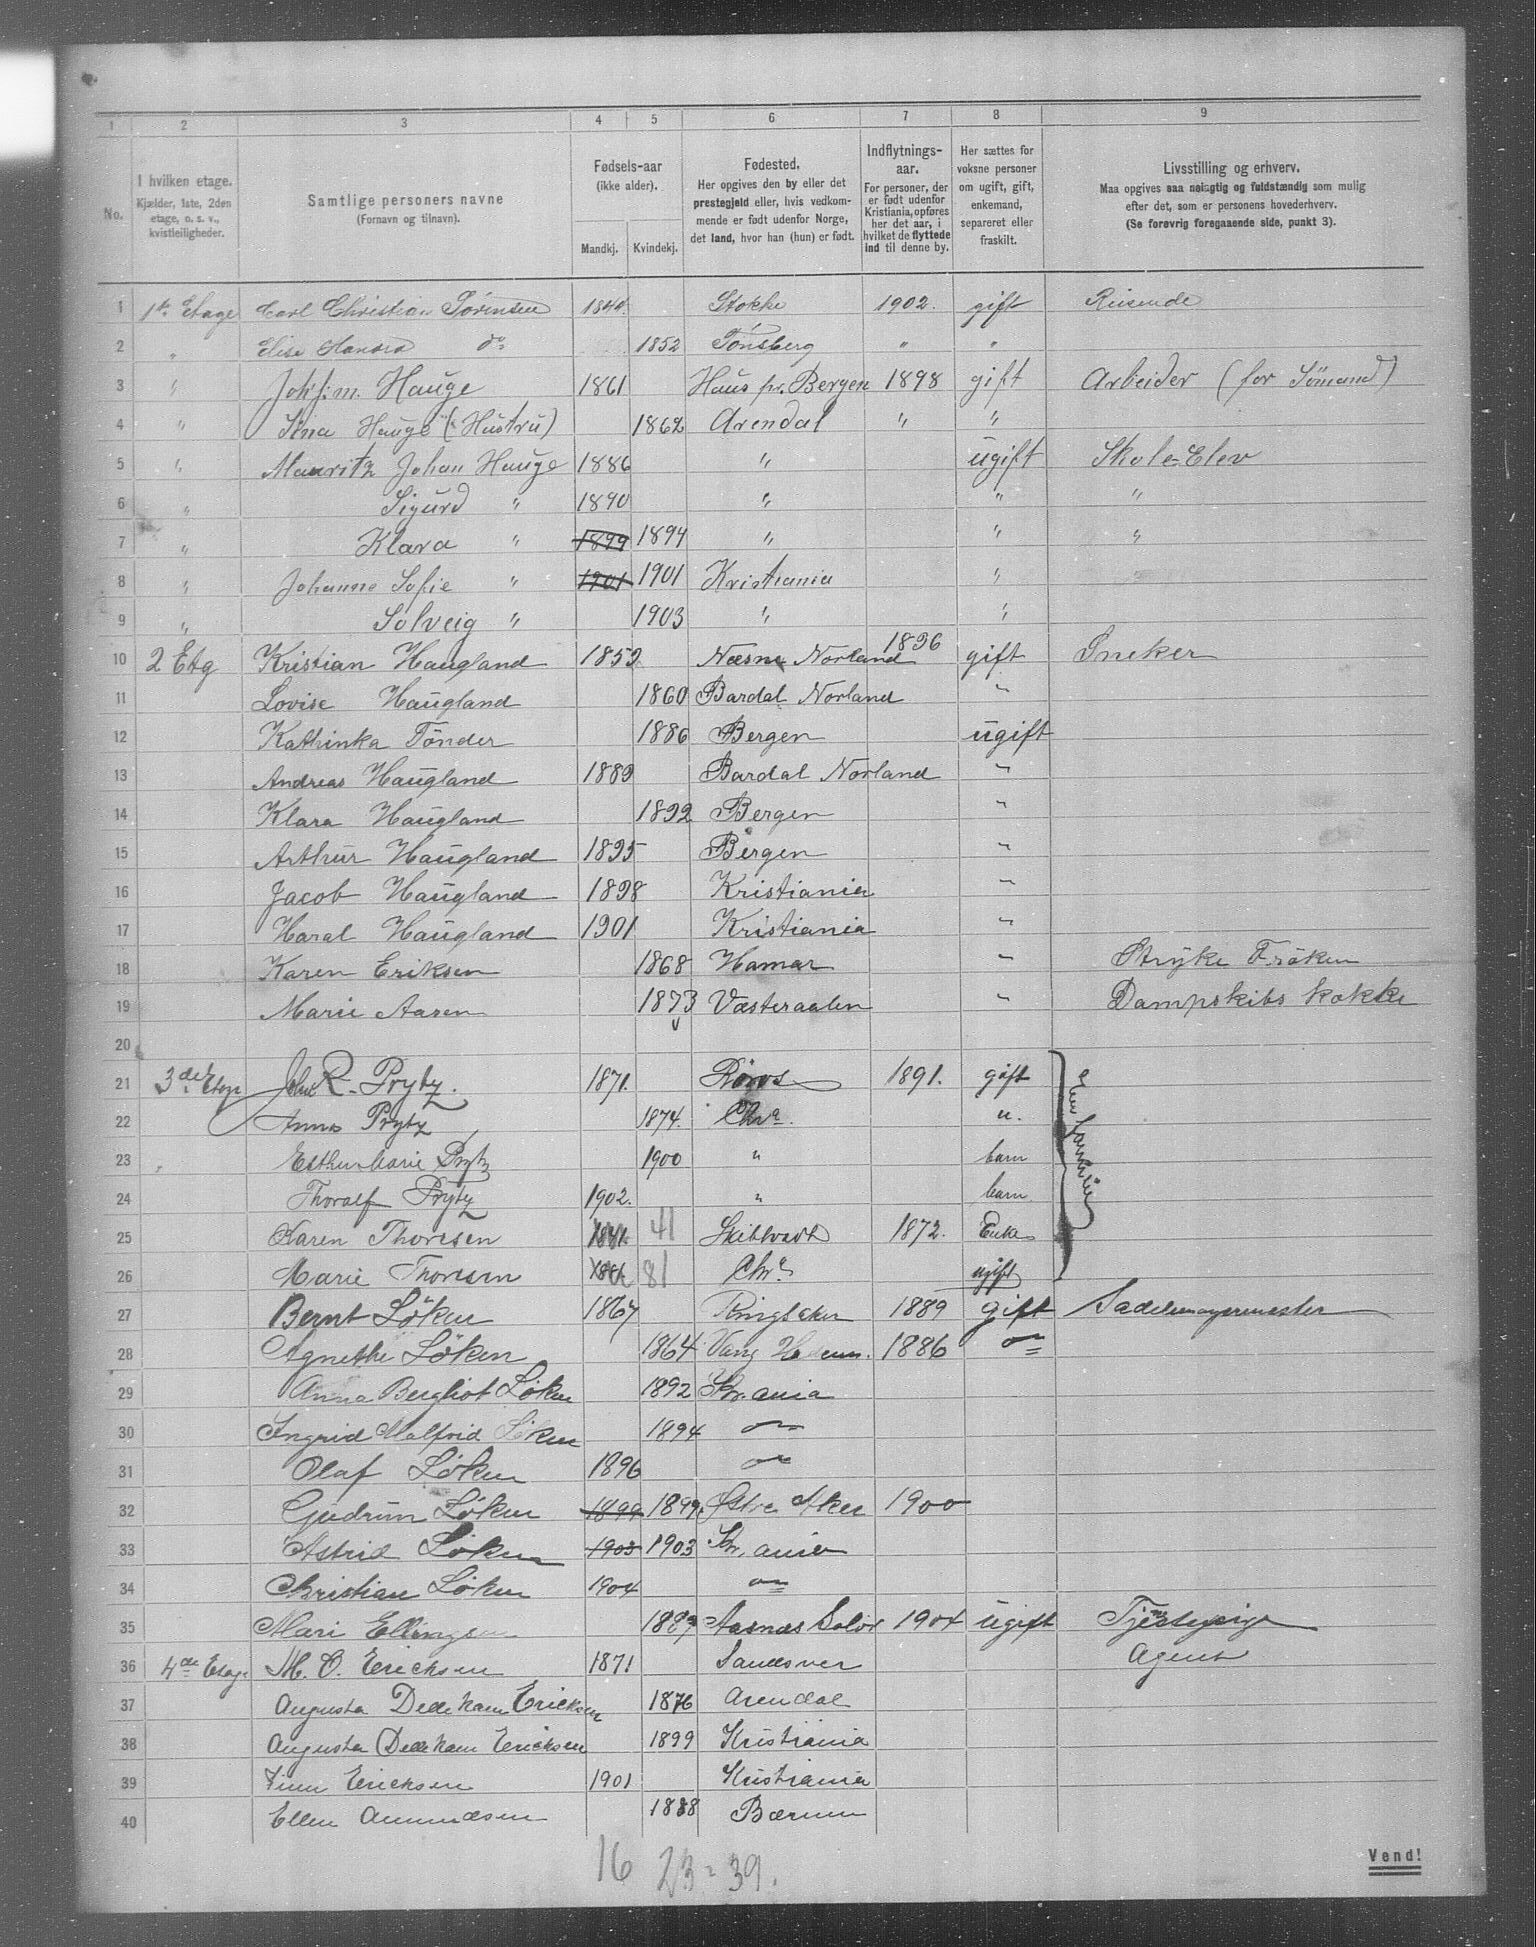 1 2 3 4 5 6 7 8 9
No.
I hvilken etage.
Kjælder, 1ste, 2den
etage, o. s. v.,
kvistleiligheder.
Samtlige personers navne
(Fornavn og tilnavn).
Fødsels-aar
(ikke alder).
Mandkj. Kvindekj.
Fødested.
Her opgives den by eller det
prestegjeld eller, hvis vedkom-
mende er født udenfor Norge,
det land, hvor han (hun) er født.
Indflytnings-
aar.
For personer, der
er født udenfor
Kristiania, opføres
her det aar, i
hvilket de flyttede
ind til denne by.
Her sættes for
voksne personer
om ugift, gift,
enkemand,
separeret eller
fraskilt.
Livsstilling og erhverv.
Maa opgives saa nøiagtig og fuldstændig som mulig
efter det, som er personens hovederhverv.
(Se forøvrig foregaaende side, punkt 3).
1 1ste Etage Carl Christian Sörensen 184 Stokke 1902. gift Reisende
2 " Elise do 1852 Tönsberg " "
3 " Joh: m. Hauge 1861 Haus pr. Bergen 1898 gift Arbeider (for Sömand)
4 " Sina Hauge (Hustru) 1862 Arendal " "
5 " Mauritz Johan Hauge 1886 " ugift Skole Elev
6 " Sigurd " 1890 " " "
7 " Klara " 1899 1894 " " "
8 " Johanne Sofie " 1901 1901 Kristiania "
9 " Solveig " 1903 " "
10 2 Etg Kristian Haugland 1859 Næsne Norland 1896 gift Sneker
11 Lovise Haugland 1860 Bardal Norland "
12 Kathinka Tönder 1886 Bergen ugift
13 Andreas Haugland 1889 Bardal Norland "
14 Klara Haugland 1892 Bergen "
15 Arthur Haugland 1895 Bergen "
16 Jacob Haugland 1898 Kristiania "
17 Haral Haugland 1901 Kristiania "
18 Karen Eriksen 1868 Hamar " Stryke Fröken
19 Marie Aasen 1873 Væsteraalen " Dampskibs kokke
20
21 3de Etage John R. Prytz. 1871. Röros 1891. gift
22 Anna Prytz 1874. Chra. u.
23 " Esther Marie Prytz 1900 " barn
24 Thoralf Prytz 1902. " barn
25 Karen Thoresen 41 Skibtvedt 1872. Enke
26 Marie Thoresen 81 Chra ugift
27 Bernt Löken 1867 Ringsaker 1889 gift Sadelmagermester
28 Agnethe Löken 1864 Vang Hedem. 1886 "
29 Anna Bergliot Löken 1892 Kr.ania
30 Ingrid Malfrid Löken 1894 "
31 Olaf Löken 1896 "
32 Gudrun Löken 1899 1899. Østre Aker 1900
33 Astrid Löken 1903 1903 Kr.ania
34 Christian Löken 1904 "
35 Mari Ellingsen 1889 Aasnæs Solör 1904 ugift Tjenstepige
36 4de Etage M. O. Ericksen 1871 Sandsver Agent
37 Augusta Dedekam Ericksen 1876 Arendal
38 Augusta Dedekam Ericksen 1899 Kristiania
39 Finn Ericksen 1901 Kristiania
40 Ellen Amundsen 1888 Bærum
16 23 = 39.
Vend!